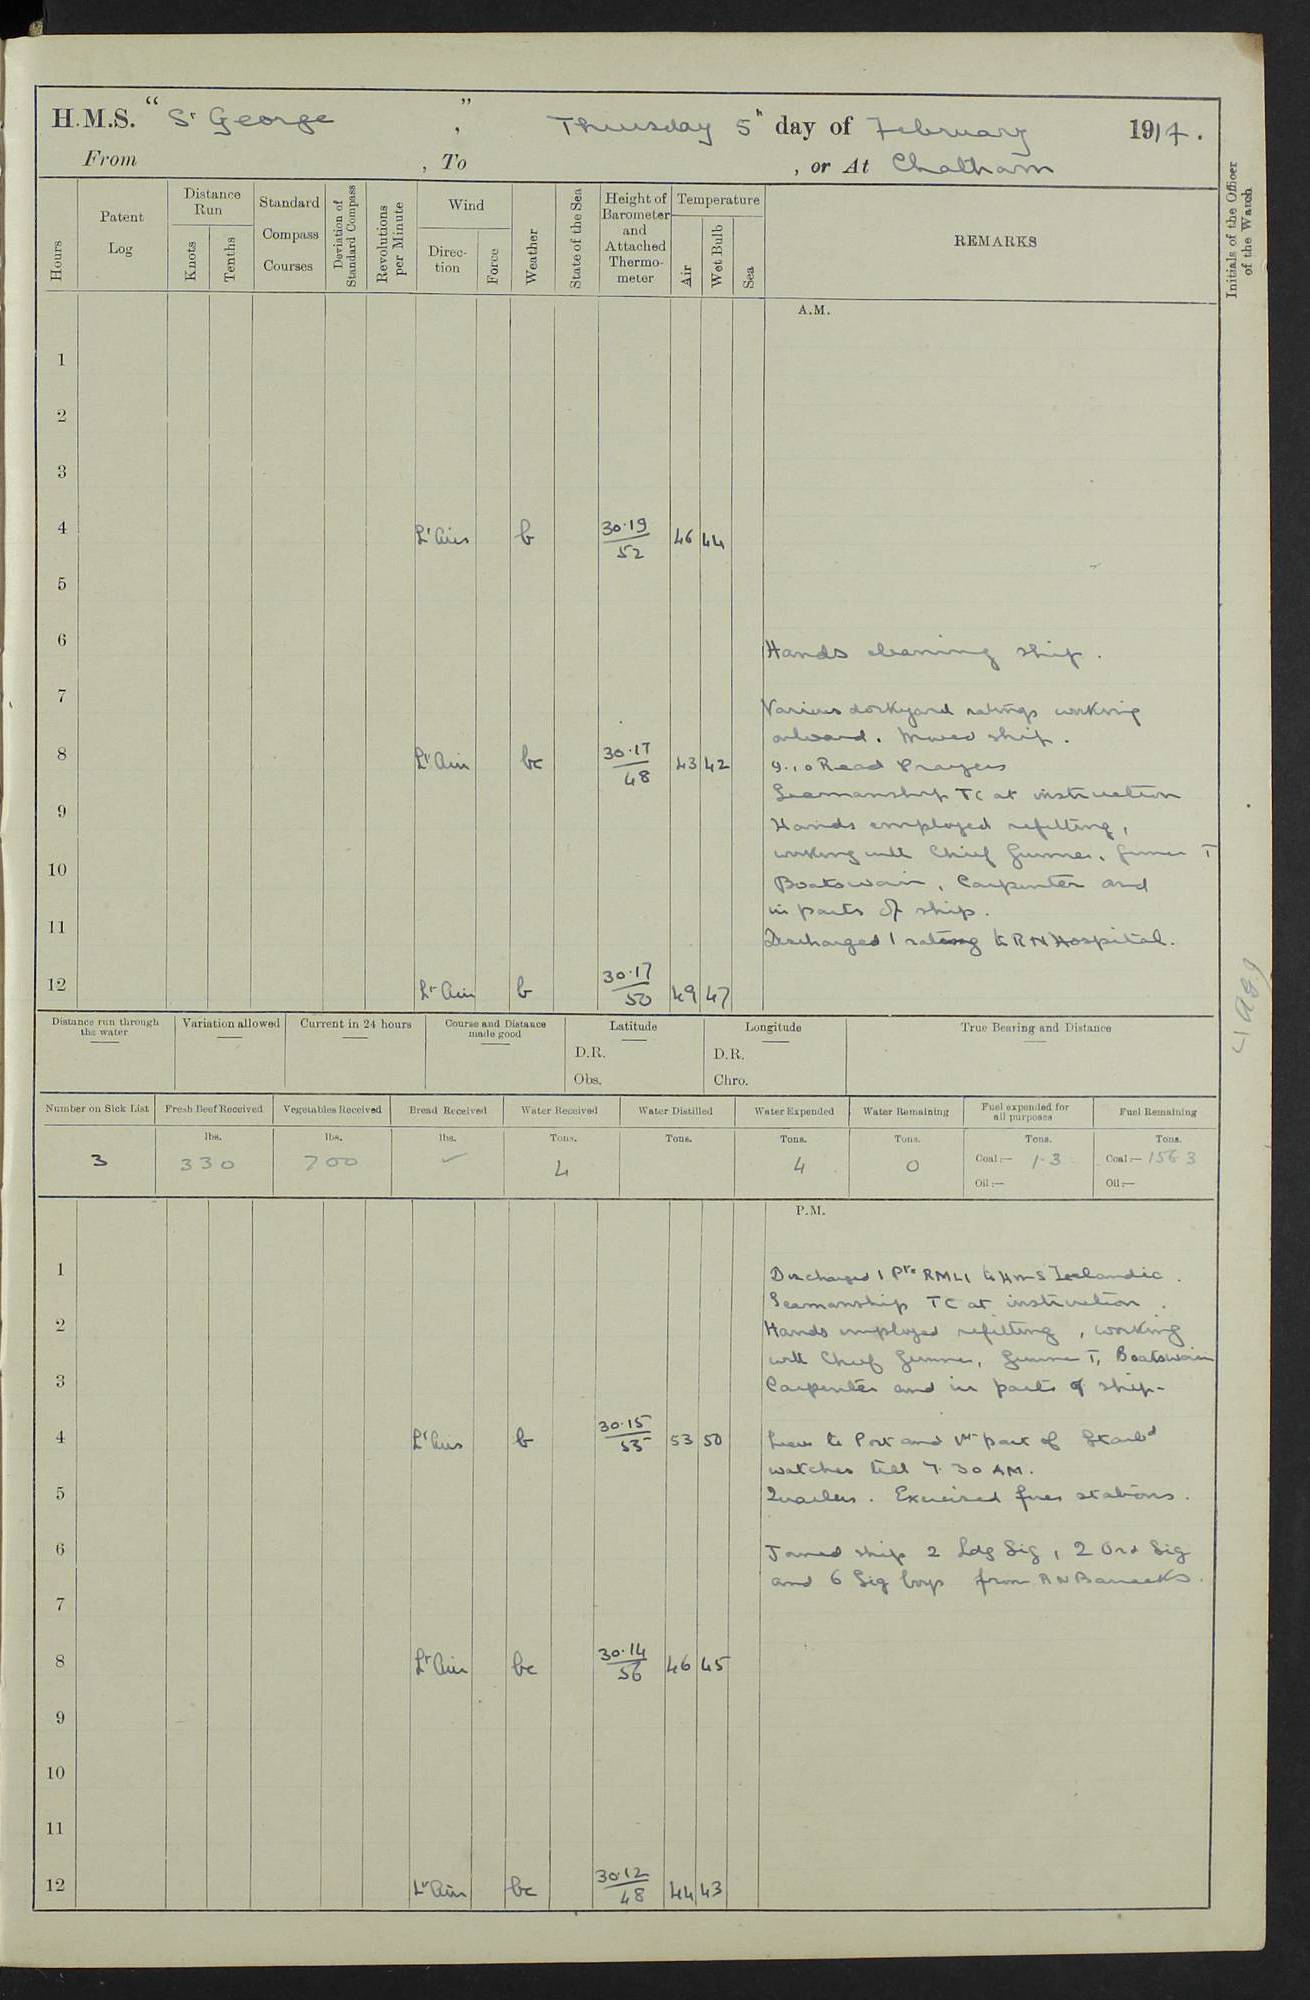 H.M.S. “ St George ” , Thursday 5th day of February 1914.
From , To , or At Chatham
Hours
Patent Log
Distance Run
Knots
Tenths
Standard Compass Courses
Deviation of Standard Compass
Revolutions per Minute
Wind
Direction
Force
Weather
State of the Sea
Height of Barometer and Attached Thermometer
Temperature
Air
Wet Bulb
Sea
REMARKS
Initials of the Officer of the Watch
A.M.
1
2
3
4 Lt Airs b 30·19/52 46 44
5
6 Hands cleaning ship.
7 Various dockyard ratings working
onboard. Moved ship.
8 Lt Air bc 30·17/48 43 42 9.10 Read Prayers
Seamanship TC at instruction
9 Hands employed refitting,
working with Chief Gunner, Gunner T
10 Boatswain, Carpenter and
in parts of ship.
11 Discharged 1 rating to RN Hospital.
12 Lt Air b 30·17/50 49 47
Distance run through the water
Variation allowed
Current in 24 hours
Course and Distance made good
Latitude
D.R.
Obs.
Longitude
D.R.
Chro.
True Bearing and Distance
Number on Sick List Fresh Beef Received Vegetables Received Bread Received Water Received Water Distilled Water Expended Water Remaining Fuel expended for all purposes Fuel Remaining
lbs. lbs. lbs. Tons. Tons. Tons. Tons. Tons. Tons.
3 330 700 ✓ 4 4 0 Coal:— 1·3 Coal:— 156 3
Oil:— Oil:—
P.M.
1 Discharged 1 Pte RMLI to HMS Icelandic.
Seamanship TC at instruction.
2 Hands employed refitting, working
with Chief Gunner, Gunner T, Boatswain
3 Carpenter and in parts of ship-
4 Lt Airs b 30·15/55 53 50 Leave to Port and 1st part of Starbd
watches till 7.30 AM.
5 Quarters. Exercised fire stations.
6 Joined ship 2 Ldg Sig, 2 Ord Sig
and 6 Sig boys from RN Barracks.
7
8 Lt Air bc 30·14/56 46 45
9
10
11
12 Lt Air bc 30·12/48 44 43